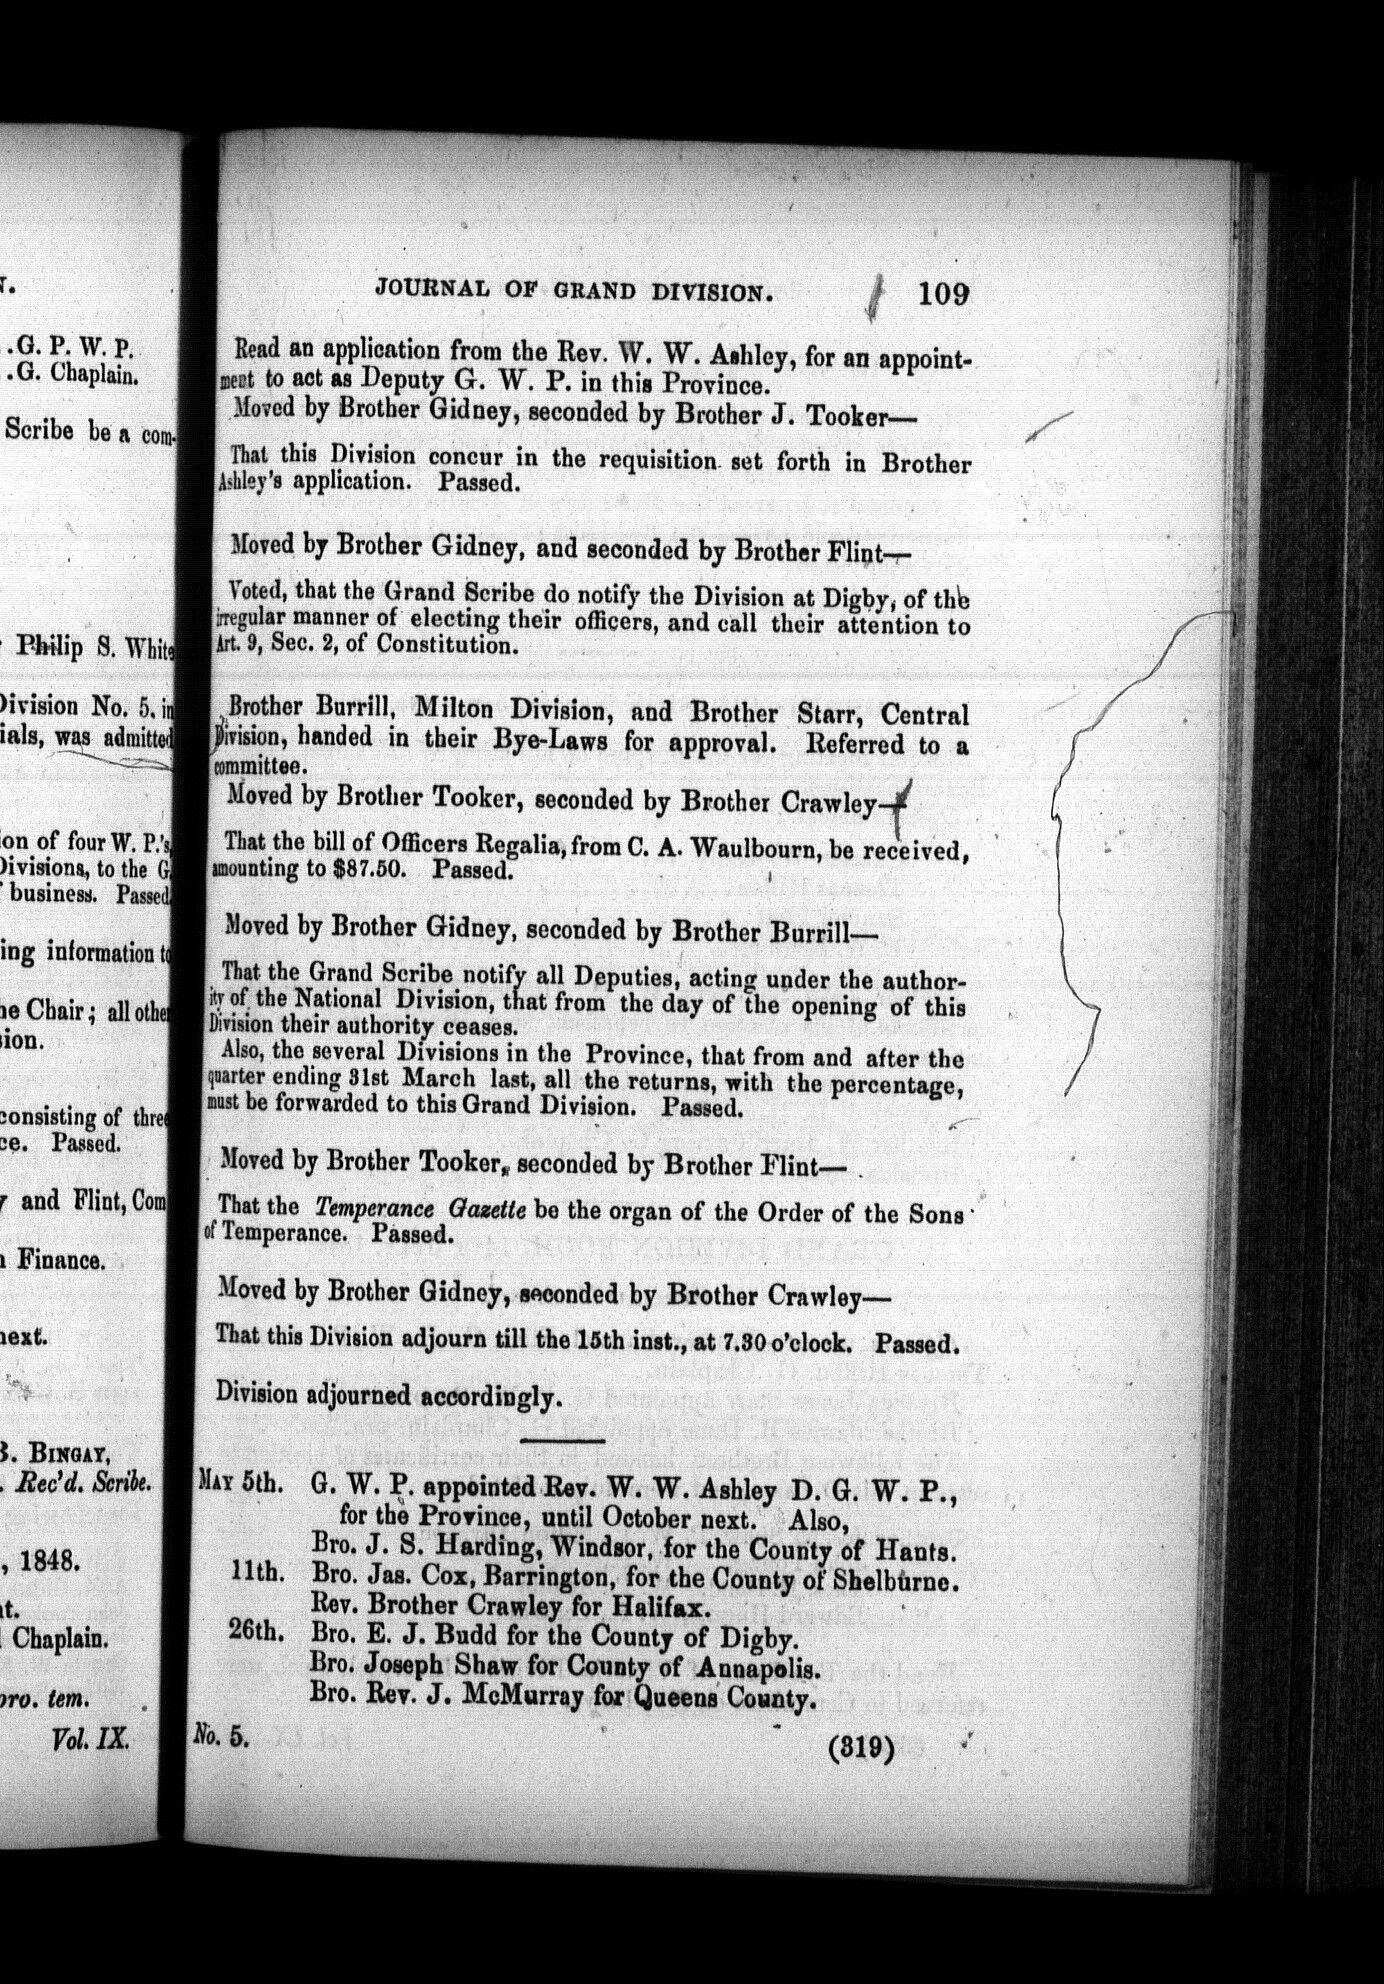 .G. P. W. P.
.G. Chaplain.
Scribe be a com-
Philip S. White
Division No. 5. in
ials, was admitted
ion of four W. P.'s,
Divisions, to the G.
business. Passed.
ing information to
he Chair; all other
sion.
consisting of three
ce. Passed.
y and Flint, Com
n Finance.
next.
B. BINGAY,
Rec'd. Scribe.
, 1848.
nt.
Chaplain.
pro. tem.
Vol. IX.
JOURNAL OF GRAND DIVISION. 109
Read an application from the Rev. W. W. Ashley, for an appoint-
ment to act as Deputy G. W. P. in this Province.
Moved by Brother Gidney, seconded by Brother J. Tooker—
That this Division concur in the requisition set forth in Brother
Ashley's application. Passed.
Moved by Brother Gidney, and seconded by Brother Flint—
Voted, that the Grand Scribe do notify the Division at Digby, of the
irregular manner of electing their officers, and call their attention to
Art. 9, Sec. 2, of Constitution.
Brother Burrill, Milton Division, and Brother Starr, Central
Division, handed in their Bye-Laws for approval. Referred to a
committee.
Moved by Brother Tooker, seconded by Brother Crawley—
That the bill of Officers Regalia, from C. A. Waulbourn, be received,
amounting to $87.50. Passed.
Moved by Brother Gidney, seconded by Brother Burrill—
That the Grand Scribe notify all Deputies, acting under the author-
ity of the National Division, that from the day of the opening of this
Division their authority ceases.
Also, the several Divisions in the Province, that from and after the
quarter ending 31st March last, all the returns, with the percentage,
must be forwarded to this Grand Division. Passed.
Moved by Brother Tooker, seconded by Brother Flint—
That the Temperance Gazette be the organ of the Order of the Sons
of Temperance. Passed.
Moved by Brother Gidney, seconded by Brother Crawley—
That this Division adjourn till the 15th inst., at 7.30 o'clock. Passed.
Division adjourned accordingly.
MAY 5th. G. W. P. appointed Rev. W. W. Ashley D. G. W. P.,
for the Province, until October next. Also,
Bro. J. S. Harding, Windsor, for the County of Hants.
11th. Bro. Jas. Cox, Barrington, for the County of Shelburne.
Rev. Brother Crawley for Halifax.
26th. Bro. E. J. Budd for the County of Digby.
Bro. Joseph Shaw for County of Annapolis.
Bro. Rev. J. McMurray for Queens County.
No. 5. (319)